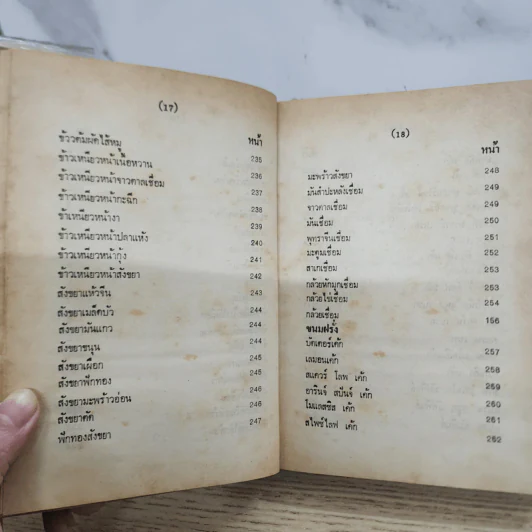 (17)
หน้า
ข้าวต้มผัดไส้หมู 235
ข้าวเหนียวหน้าเนื้อหวาน 236
ข้าวเหนียวหน้าจาวตาลเชื่อม 237
ข้าวเหนียวหน้ากะฉีก 238
ข้าเหนียวหน้างา 239
ข้าวเหนียวหน้าปลาแห้ง 240
ข้าวเหนียวหน้ากุ้ง 241
ข้าวเหนียวหน้าสังขยา 242
สังขยาแห้วจีน 243
สังขยาเมล็ดบัว 244
สังขยามันแกว 244
สังขยาขนุน 244
สังขยาเผือก 245
สังขยาฟักทอง 245
สังขยามะพร้าวอ่อน 246
สังขยาตัด 246
ฟักทองสังขยา 247
(18)
หน้า
มะพร้าวสังขยา 248
มันสำปะหลังเชื่อม 249
จาวตาลเชื่อม 249
มันเชื่อม 250
พุทราจีนเชื่อม 251
มะตูมเชื่อม 252
สาเกเชื่อม 253
กล้วยหักมุกเชื่อม 253
กล้วยไข่เชื่อม 254
กล้วยเชื่อม 156
ขนมฝรั่ง
บัตเตอร์เค้ก 257
เลมอนเค้ก 258
สแควร์ โลฟ เค้ก 259
อารินจ์ สปันจ์ เค้ก 260
โมแลสซิส เค้ก 261
สไพซ์โลฟ เค้ก 262